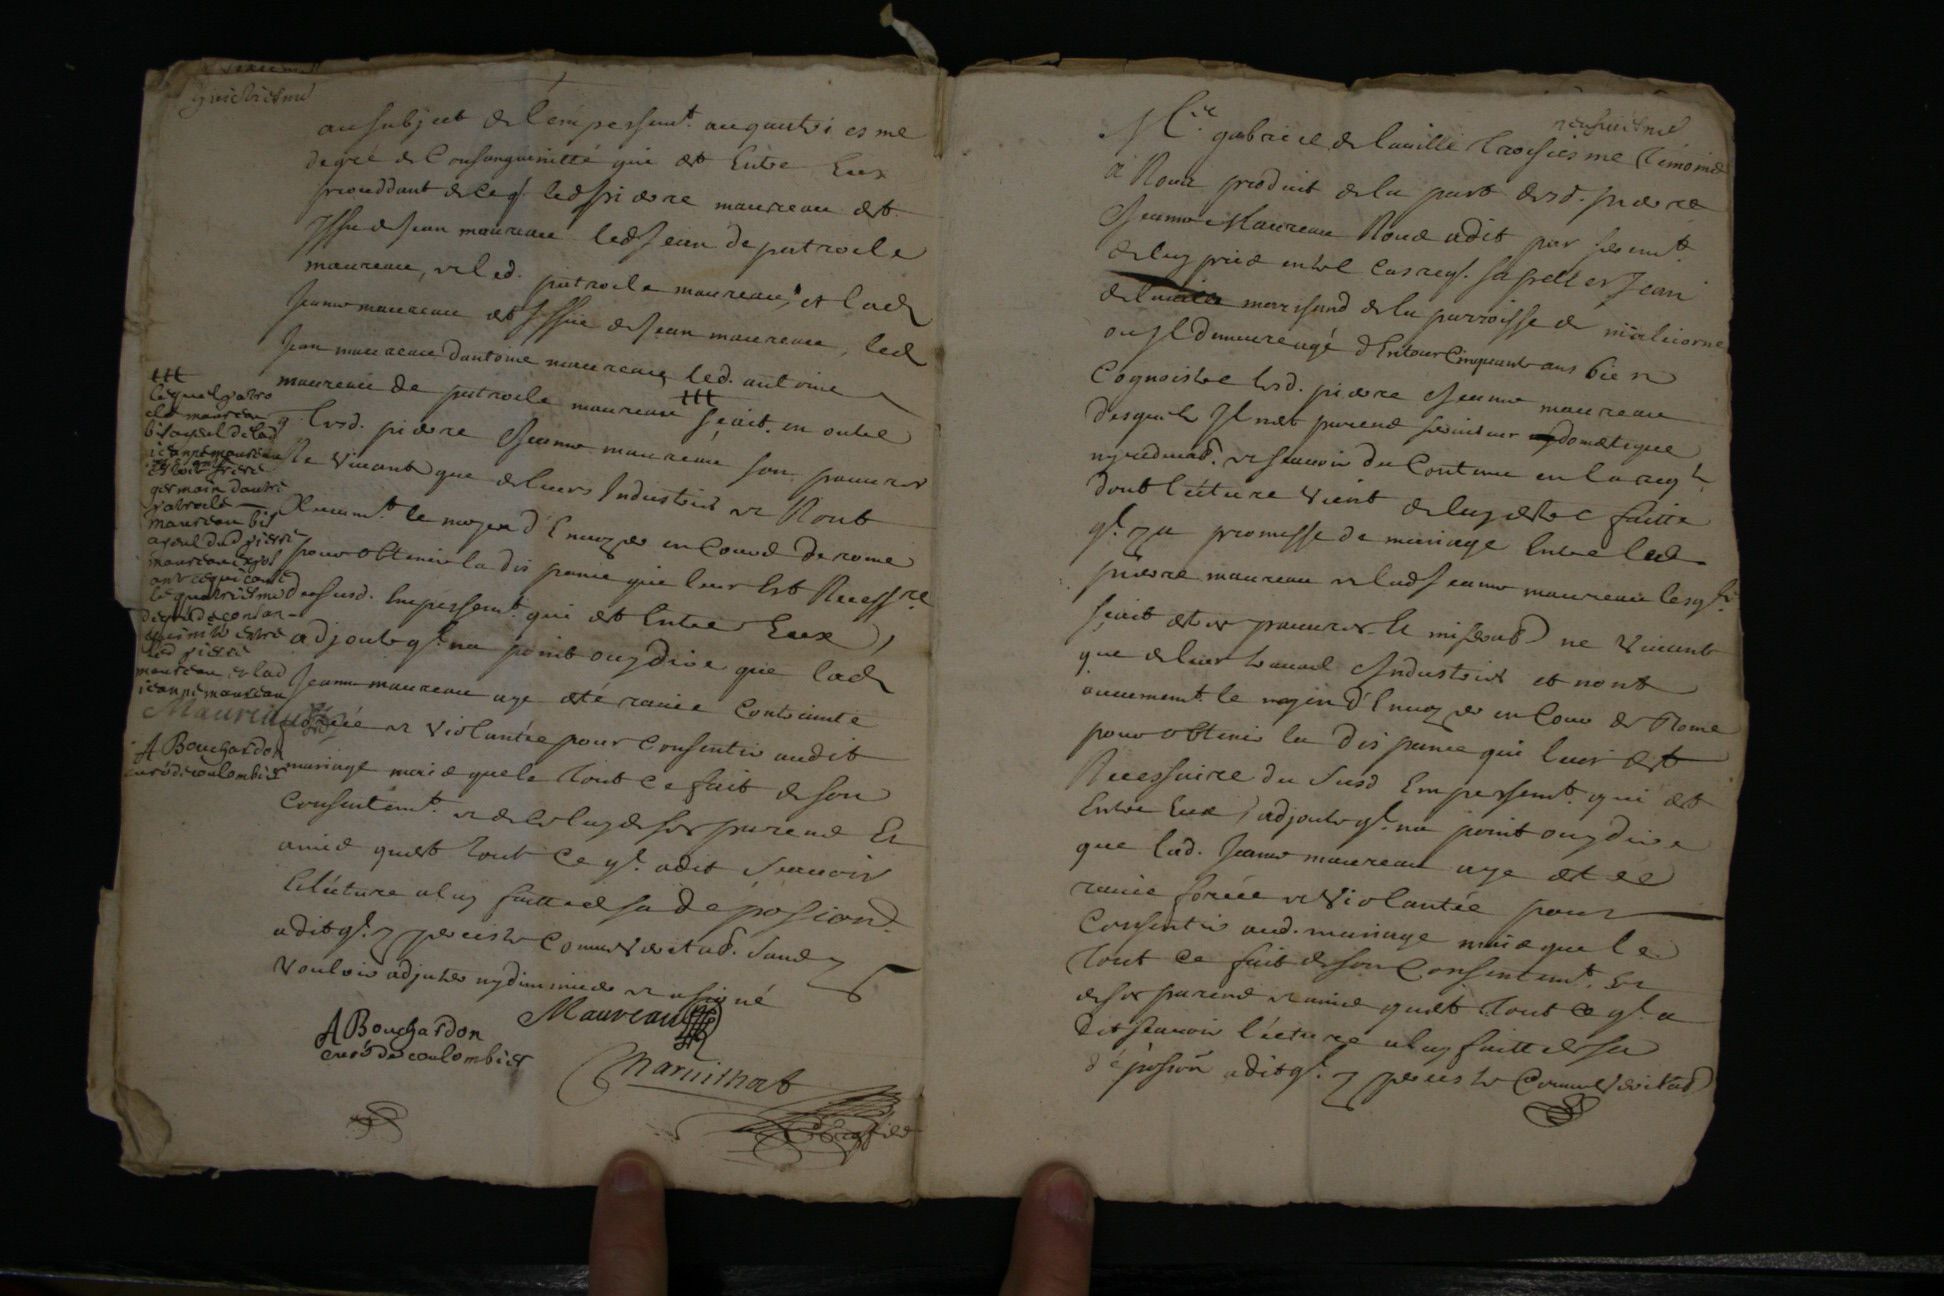 huictiesme
au subject de l'empessemt. au quatriesme
degré de Consanguinitté qui est Entre Eux
proceddant de ce q. led pierre maureau est
Issu de Jean maureau led Jean de patrocle
maureau, et led. patrocle maureau, et lad
Jeanne maureau est Issue de Jean maureau, led
Jean maureau dantoine maureau led. antoine
maureau de patrocle maureau scait en oultre
q. lesd. pierre Jeanne maureau son pauvres
Ne Vivant que de leurs Industries et Nont
aucunemt. le moyen d'Envoyer en Cour de rome
pour obtenir la dispance qui leur Est Necessre
du susd. Empessemt. qui est Entre Eux,
adjoute ql. na point ouy dire que lad
Jeanne maureau aye esté ravie Contrainte
forcée et violantée pour Consentir audit
mariage mais que le tout Ce fait de son
Consentemt. et de Celuy de ses parens Et
amis quest tout Ce ql. a dit Scavoir
lecture a luy faitte de sa déposion
a dit ql. y persiste Comme Veritab. Sans
Vouloir adjuter ny diminuer et a signé
Maureau
A Bouchardon
curé de coulombier
Maruithat
ttt
lequel patro
cle maureau
bisayeul de lad
jeanne maureau
estoit frere
germain dautre
patrocle
maureau bis
ayeul dud pierre
maureau
ant ce qui cause
le quatriesme
degré de consan-
guinité entre
led pierre
maureau et lad
jeanne maureau
Maureau
A Bouchardon
curé de coulombier
neufviesme
Me. gabriel de laville troisiesme témoins
a Nous produit de la part desd. pierre
Jeanne Maureau Nous a dit par sermt.
de luy pris en tel Cas req. sapeller Jean
delaville marchand de la parroisse de malicorne
ou Il demeure agé d'Entour Cinquante ans bien
Cognoistre lesd. pierre Jeanne maureau
desquels Il nest parend serviteur ny domestique
ny redevab. et scavoir du Contenu en la reqte
dont lecture vient de luy estre faitte
ql. y a promesse de mariage Entre led
pierre maureau et lad Jeanne maureau lesqls
scait estre pauvres Et miserab ne Vivant
que de leur travail Industries et nont
aucunemt. le moyen d'Envoyer en Cour de Rome
pour obtenir la dispance qui leur est
Necessaire du Susd Empessemt. qui est
Entre Eux, adjoute ql. na point ouy dire
que lad. Jeanne maureau aye esté
ravie forcée et Violantée pour
Consentir aud. mariage mais que le
tout Ce fait de son Consentemt. Et
de ses parens et amis quest tout Ce ql. a
dit scavoir lecture a luy faitte de sa
déposion a dit ql. y persiste Comme Veritab